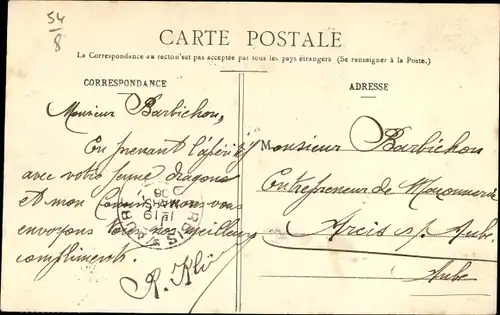 54
8
CARTE POSTALE
La Correspondance au recto n'est pas acceptée par tous les pays étrangers (Se renseigner à la Poste.)
CORRESPONDANCE
ADRESSE
Monsieur Barbichon,
En prenant l'apéritif
avec votre jeune dragons
et mon Commis nous vous
envoyons tous nos meilleurs
compliments
Monsieur Barbichon
Entrepreneur de Maçonnerie
Arcis s/ Aube
Aube